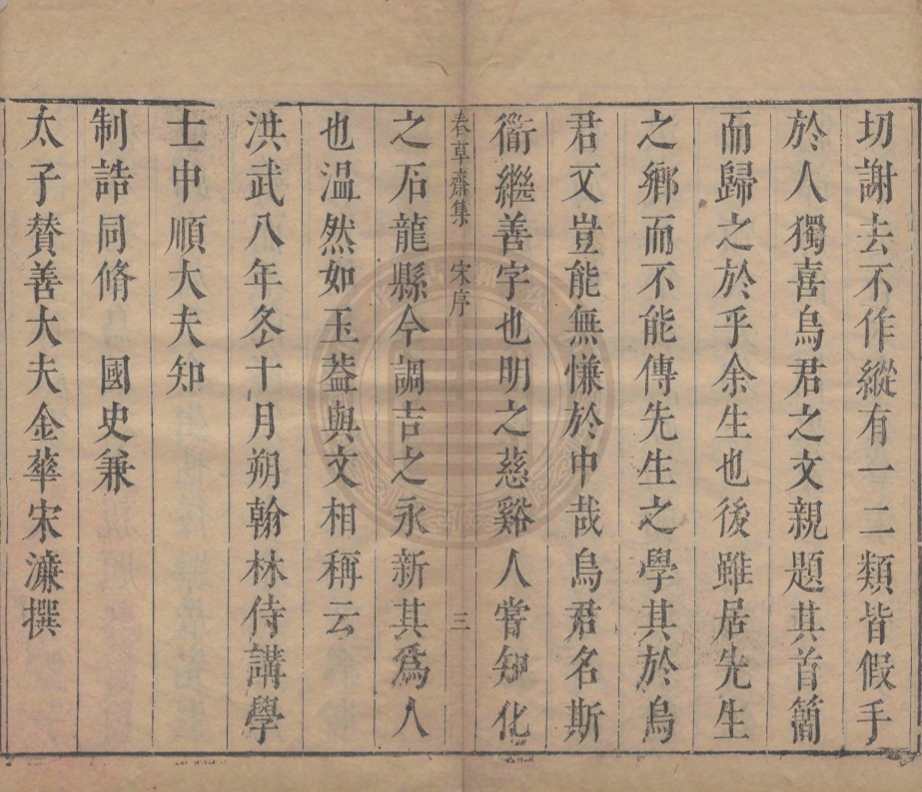 切謝去不作縱有一二類皆假手
於人獨喜烏君之文親題其首簡
而歸之於乎余生也後雖居先生
之鄉而不能傳先生之學其於烏
君又豈能無慊於中哉烏君名斯
衜繼善字也明之慈谿人嘗知化
春草齋集　宋序　三
之石龍縣今調吉之永新其爲人
也溫然如玉葢與文相稱云
洪武八年冬十月朔翰林侍講學
士中順大夫知
制誥同脩　國史兼
太子贊善大夫金華宋濂撰